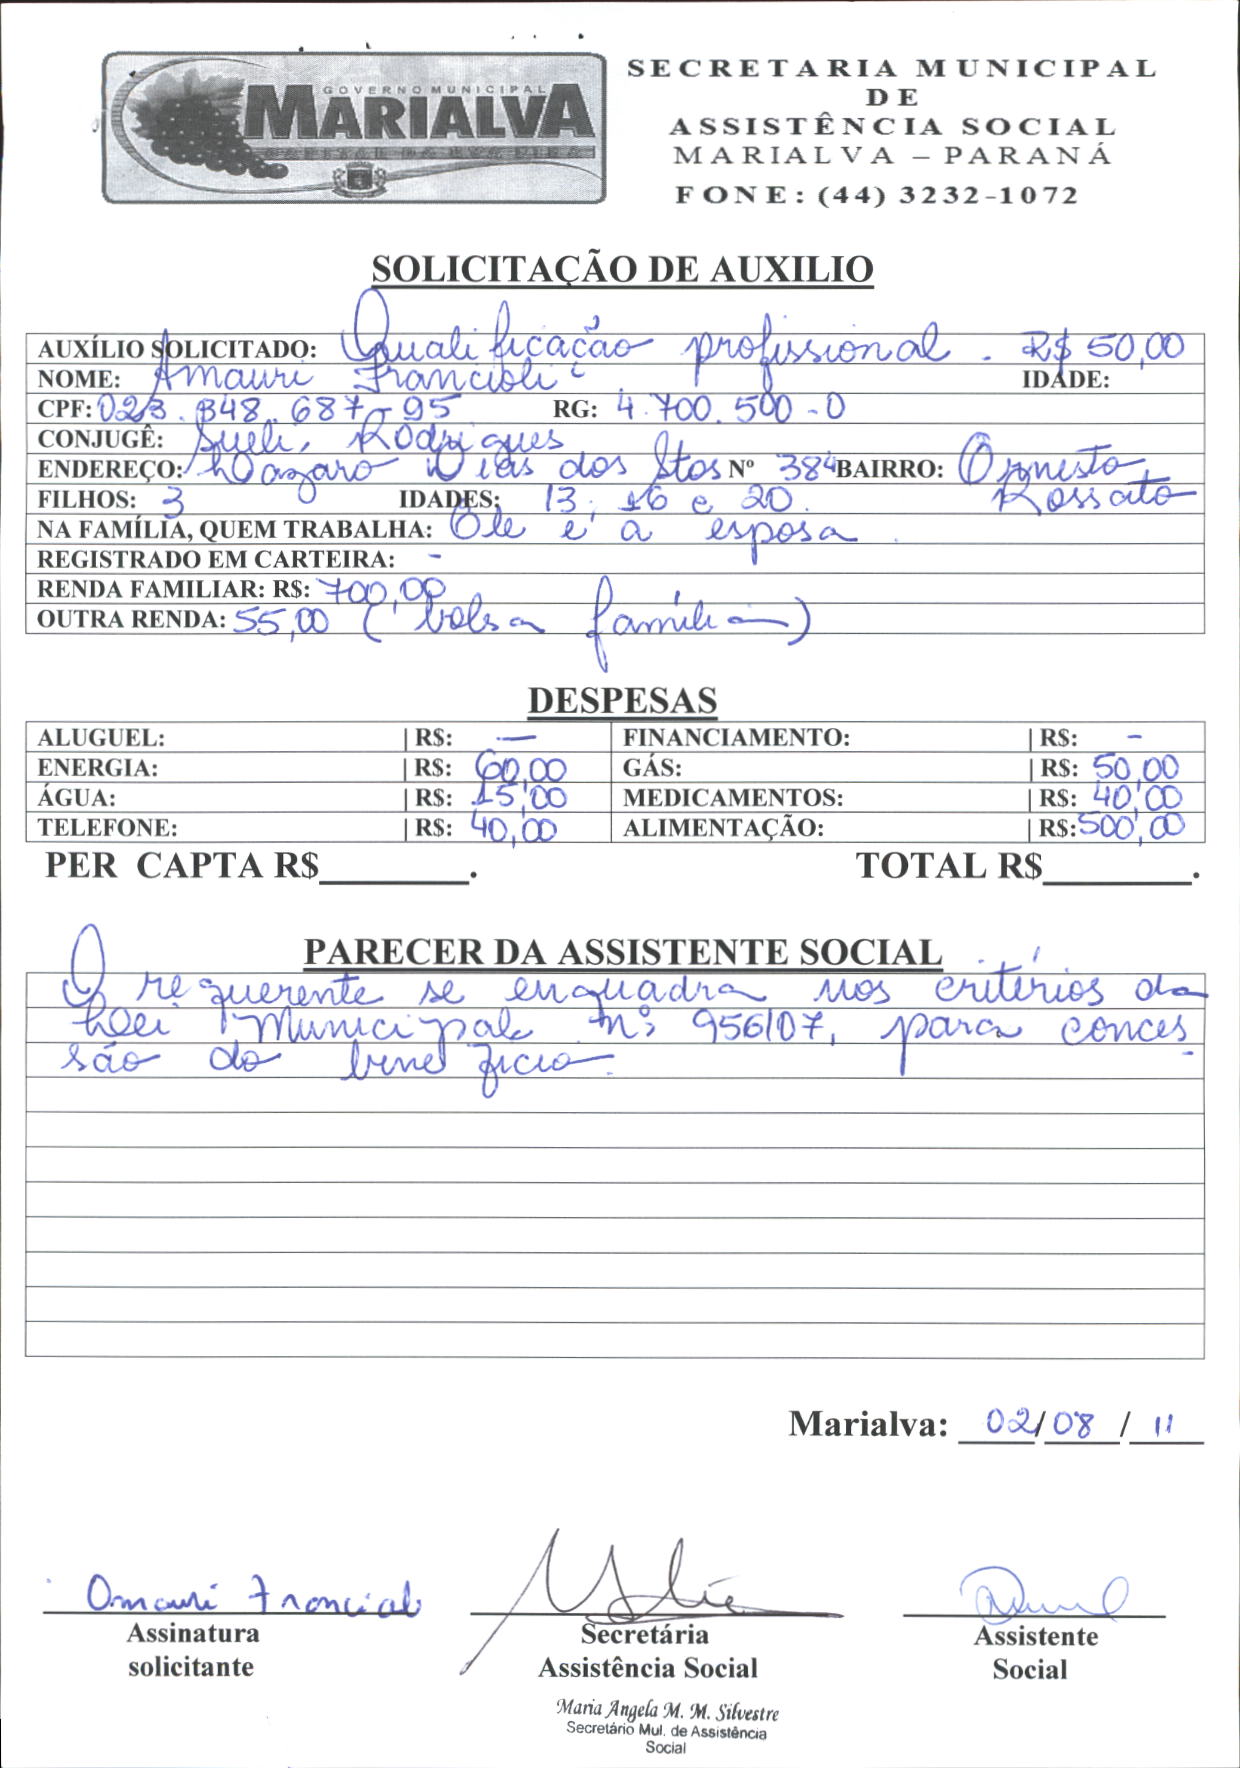 GOVERNO MUNICIPAL
MARIALVA
CAPITAL DA UVA FINA
SECRETARIA MUNICIPAL
DE
ASSISTÊNCIA SOCIAL
MARIALVA – PARANÁ
FONE: (44) 3232-1072
SOLICITAÇÃO DE AUXILIO
AUXÍLIO SOLICITADO: Qualificação profissional. R$ 50,00
NOME: Amauri Francioli IDADE:
CPF: 023.848.687-95 RG: 4.700.500-0
CONJUGÊ: Sueli Rodrigues
ENDEREÇO: Lazaro Dias dos Stos Nº 384 BAIRRO: Ornesto
Rossato
FILHOS: 3 IDADES: 13, 16 e 20.
NA FAMÍLIA, QUEM TRABALHA: Ele e a esposa.
REGISTRADO EM CARTEIRA: -
RENDA FAMILIAR: R$: 700,00
OUTRA RENDA: 55,00 (bolsa família)
DESPESAS
ALUGUEL: | R$: — FINANCIAMENTO: | R$: -
ENERGIA: | R$: 60,00 GÁS: | R$: 50,00
ÁGUA: | R$: 15,00 MEDICAMENTOS: | R$: 40,00
TELEFONE: | R$: 40,00 ALIMENTAÇÃO: | R$: 500,00
PER CAPTA R$________. TOTAL R$________.
PARECER DA ASSISTENTE SOCIAL
O requerente se enquadra nos critérios da
Lei Municipal nº 956/07, para conces
são do benefício.
Marialva: 02/08/11
Amauri Francioli
Assinatura Secretária Assistente
solicitante Assistência Social Social
Maria Angela M. M. Silvestre
Secretário Mul. de Assistência
Social